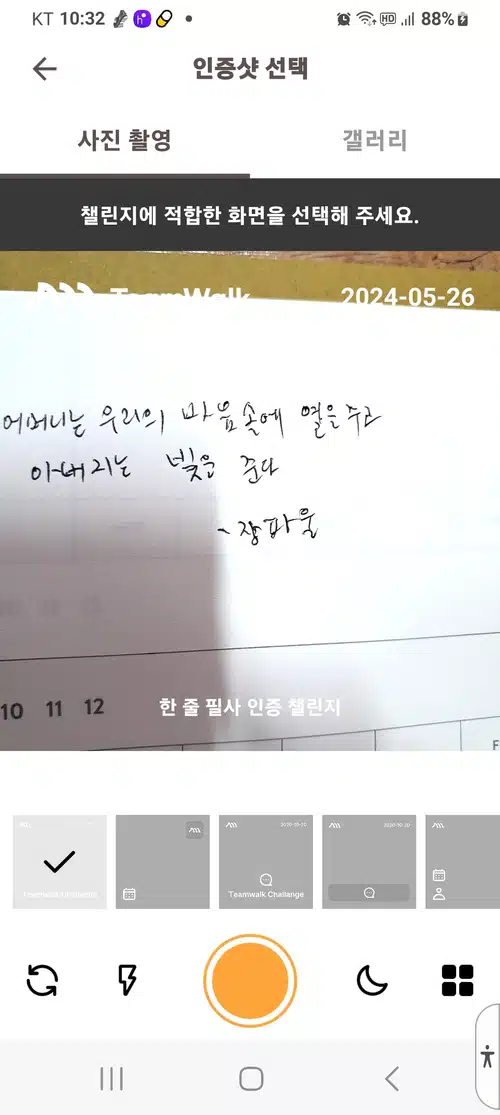 KT 10:32
HD 88%
인증샷 선택
사진 촬영 갤러리
챌린지에 적합한 화면을 선택해 주세요.
TeamWalk 2024-05-26
어머니는 우리의 마음속에 열을 주고
아버지는 빛을 준다
- 쟝파울
10 11 12
한 줄 필사 인증 챌린지
F
Teamwalk Challange